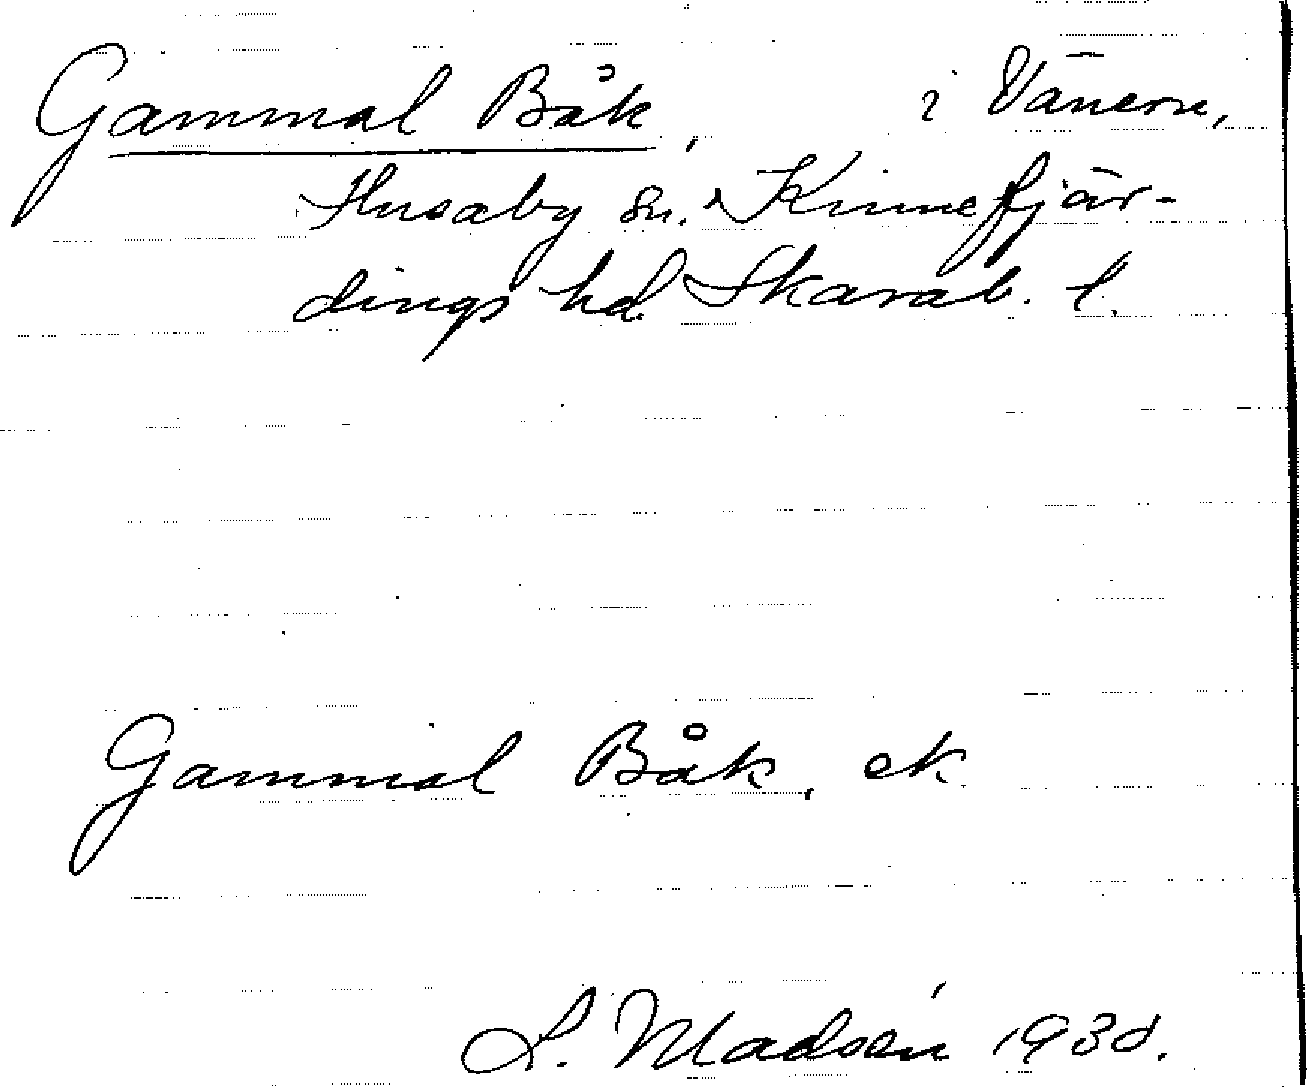 Gammal Båk, i Vänern,
Husaby sn. Kinnefjär-
dings hd. Skarab. l.
Gammal Båk, ek
L. Madsén 1930.